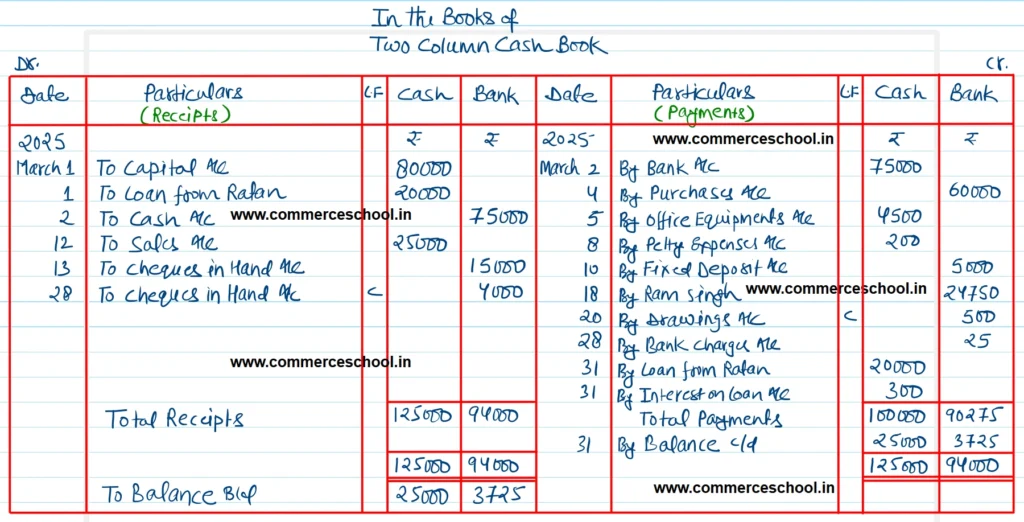 In the Books of
Two Column Cash Book
Dr. Cr.
Date Particulars LF Cash Bank Date Particulars LF Cash Bank
(Receipts) (Payments)
2025 ₹ ₹ 2025 www.commerceschool.in ₹ ₹
March 1 To Capital A/c 80000 March 2 By Bank A/c 75000
1 To Loan from Ratan 20000 4 By Purchases A/c 60000
2 To Cash A/c www.commerceschool.in 75000 5 By Office Equipments A/c 4500
12 To Sales A/c 25000 8 By Petty Expenses A/c 200
13 To Cheques in Hand A/c 15000 10 By Fixed Deposit A/c 5000
28 To Cheques in Hand A/c C 4000 18 By Ram Singh www.commerceschool.in 24750
20 By Drawings A/c C 500
28 By Bank Charges A/c 25
www.commerceschool.in 31 By Loan from Ratan 20000
31 By Interest on Loan A/c 300
Total Receipts 125000 94000 Total Payments 100000 90275
31 By Balance c/d 25000 3725
125000 94000 125000 94000
To Balance B/d 25000 3725 www.commerceschool.in